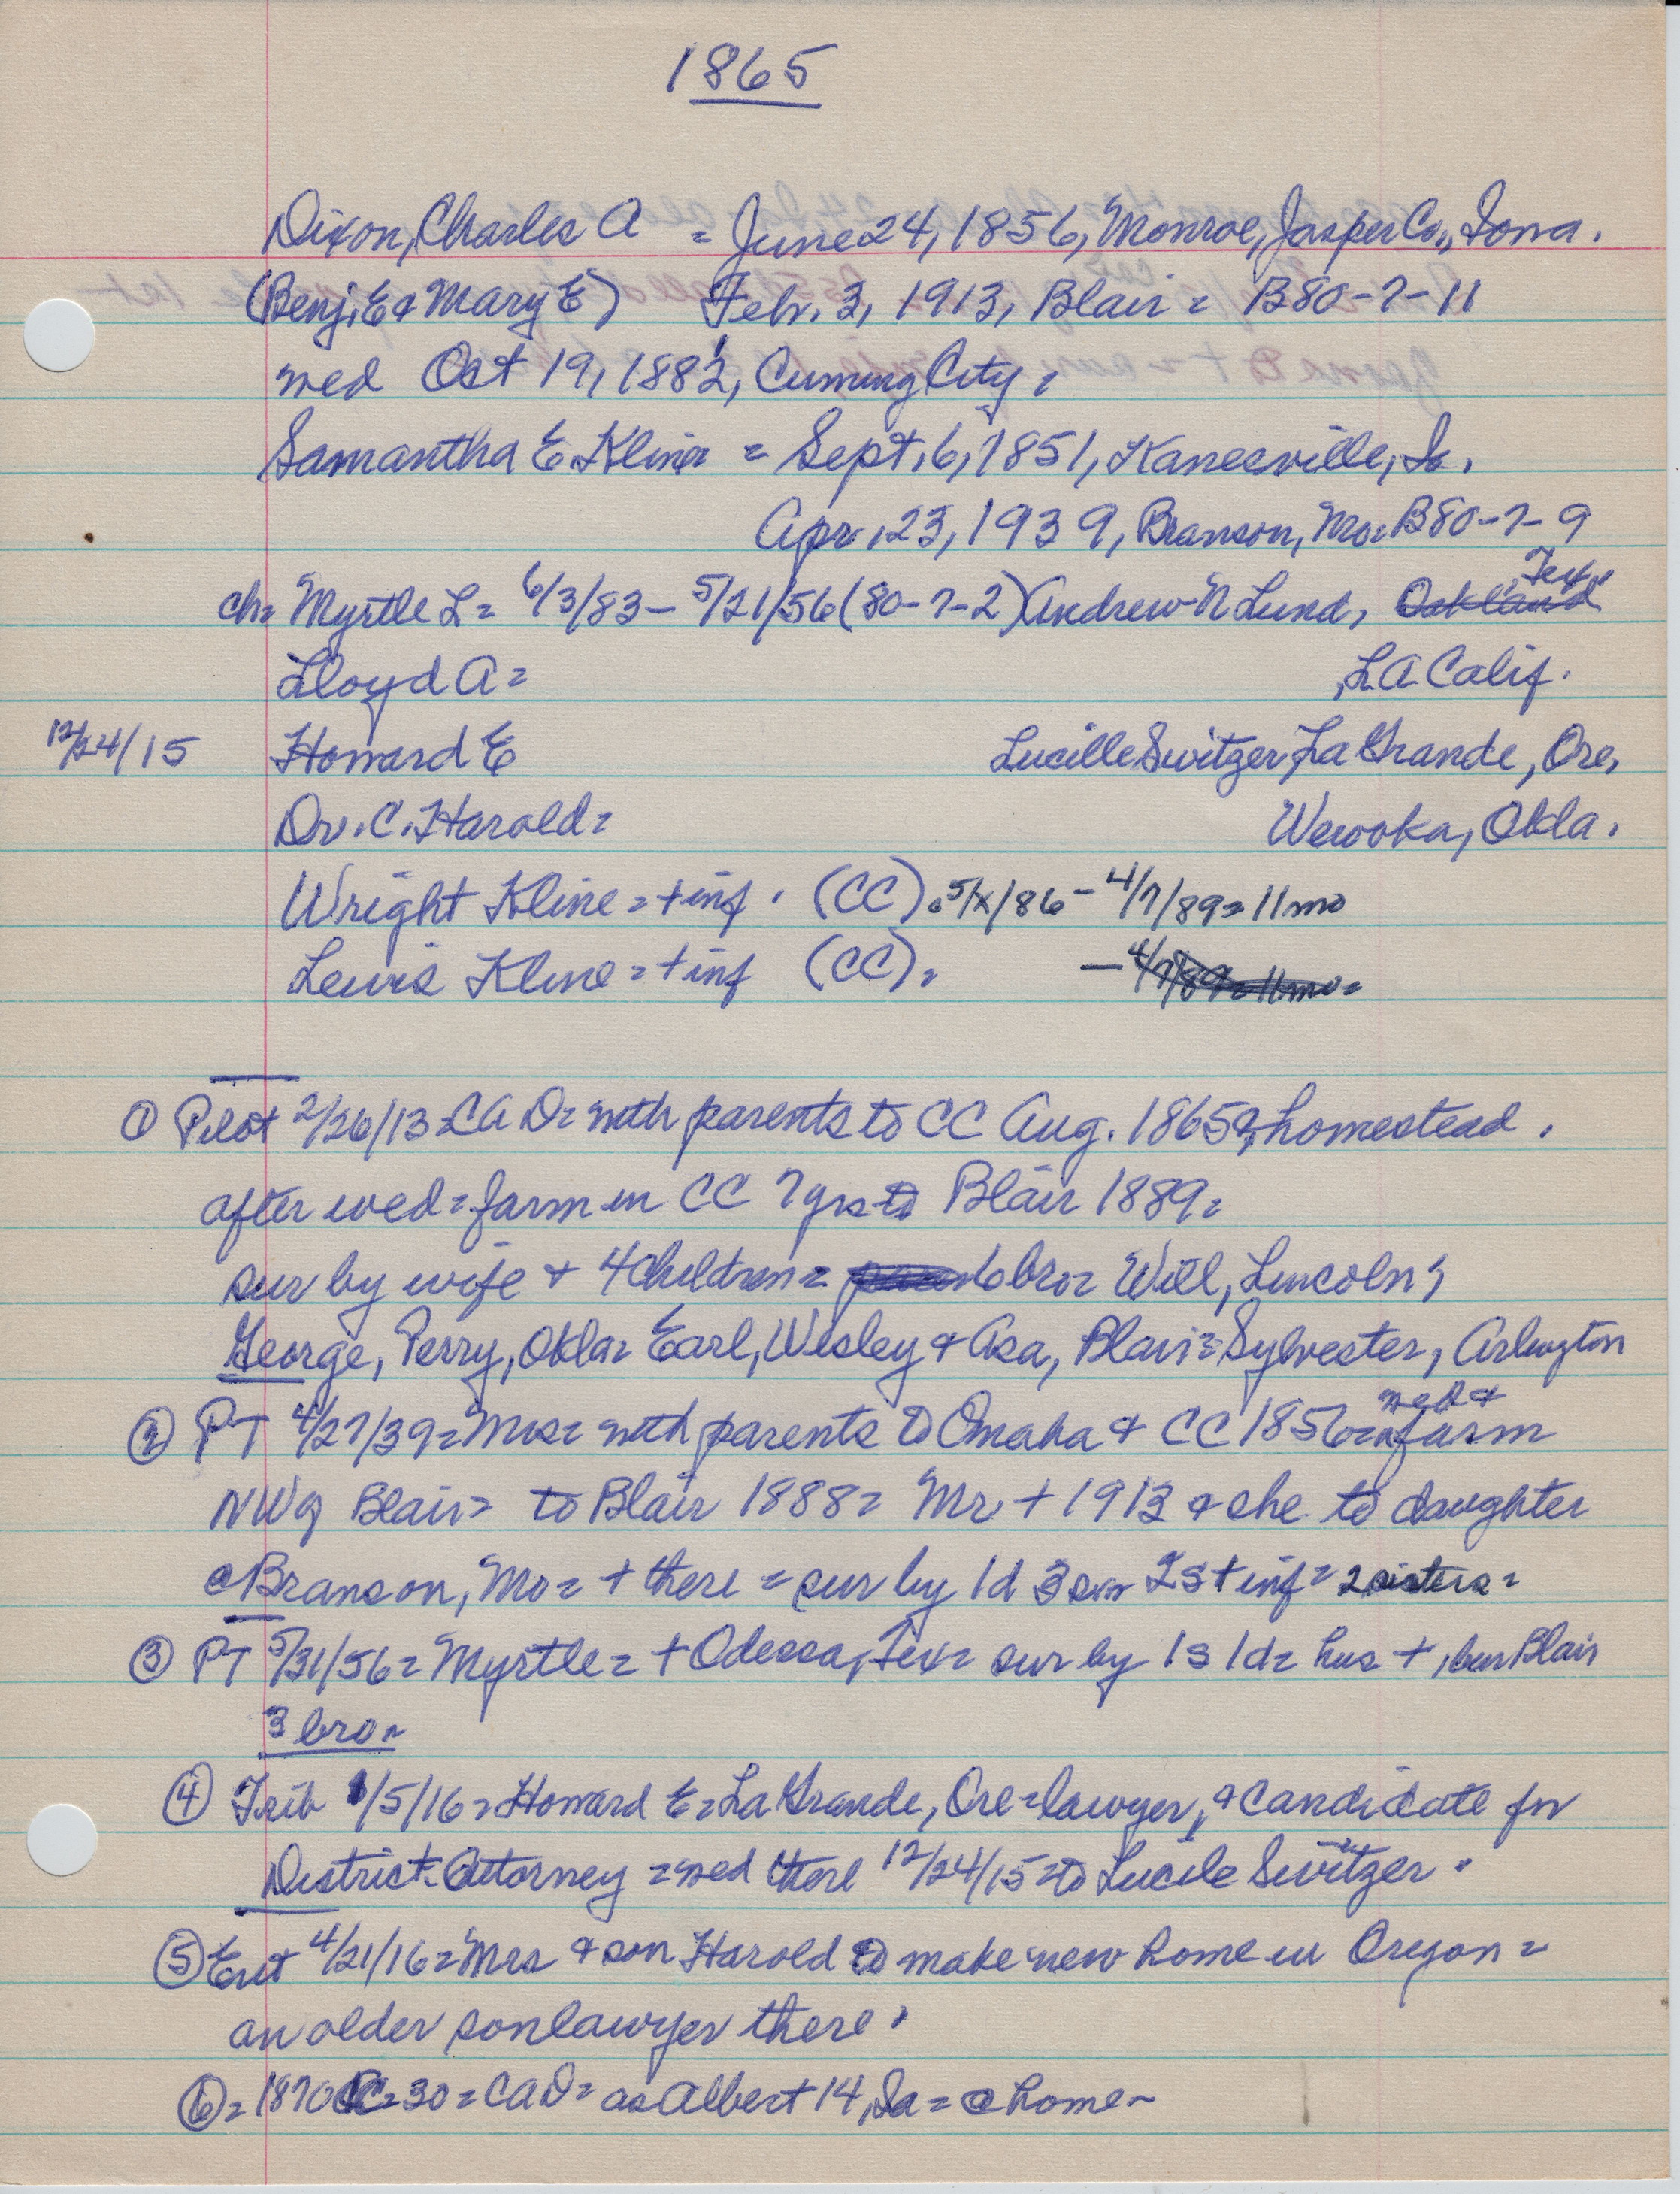 1865
Dixon, Charles A = June 24, 1856, Monroe, Jasper Co., Iowa.
(Benj. E & Mary E) Febr. 3, 1913, Blair = B80-7-11
wed Oct 19, 1882, Cuming City =
Samantha E. Kline = Sept. 6, 1851, Kanesville, Ia.
Apr. 23, 1939, Branson, Mo = B80-7-9
Tex
ch = Myrtle L = 6/3/83 - 5/21/56 (80-7-2) Andrew N Lund, Oakland
Lloyd A = , LA Calif.
12/24/15 Howard E Lucille Switzer, La Grande, Ore.
Dr. C. Harold = Wewoka, Okla.
Wright Kline = + inf. (CC). 5/x/86 - 4/7/89 = 11 mo
Lewis Kline = + inf (CC). - 4/7/89 = 11 mo =
① Pilot 2/26/13 = CAD = with parents to CC Aug. 1865 & homestead.
after wed = farm in CC 7 yrs to Blair 1889 =
sur by wife & 4 children = 6 bro = Will, Lincoln;
George, Perry, Okla = Earl, Wesley & Asa, Blair = Sylvester, Arlington
wed &
② PT 4/27/39 = Mrs = with parents to Omaha & CC 1856 = farm
NW of Blair = to Blair 1888 = Mr + 1913 & she to daughter
@ Branson, Mo = + there = sur by 1d 3 son 2s + inf = 2 sisters =
③ PT 5/31/56 = Myrtle = + Odessa, Tex = sur by 1s 1d = hus +, bur Blair
3 bro -
④ Trib 1/5/16 = Howard E = La Grande, Ore = lawyer, & candidate for
District Attorney = wed there 12/24/15 = to Lucile Switzer.
⑤ Ent 4/21/16 = Mrs & son Harold to make new home in Oregon =
an older son lawyer there.
⑥ = 1870 CC = 30 = CAD = as Albert 14, Ia = @ home -